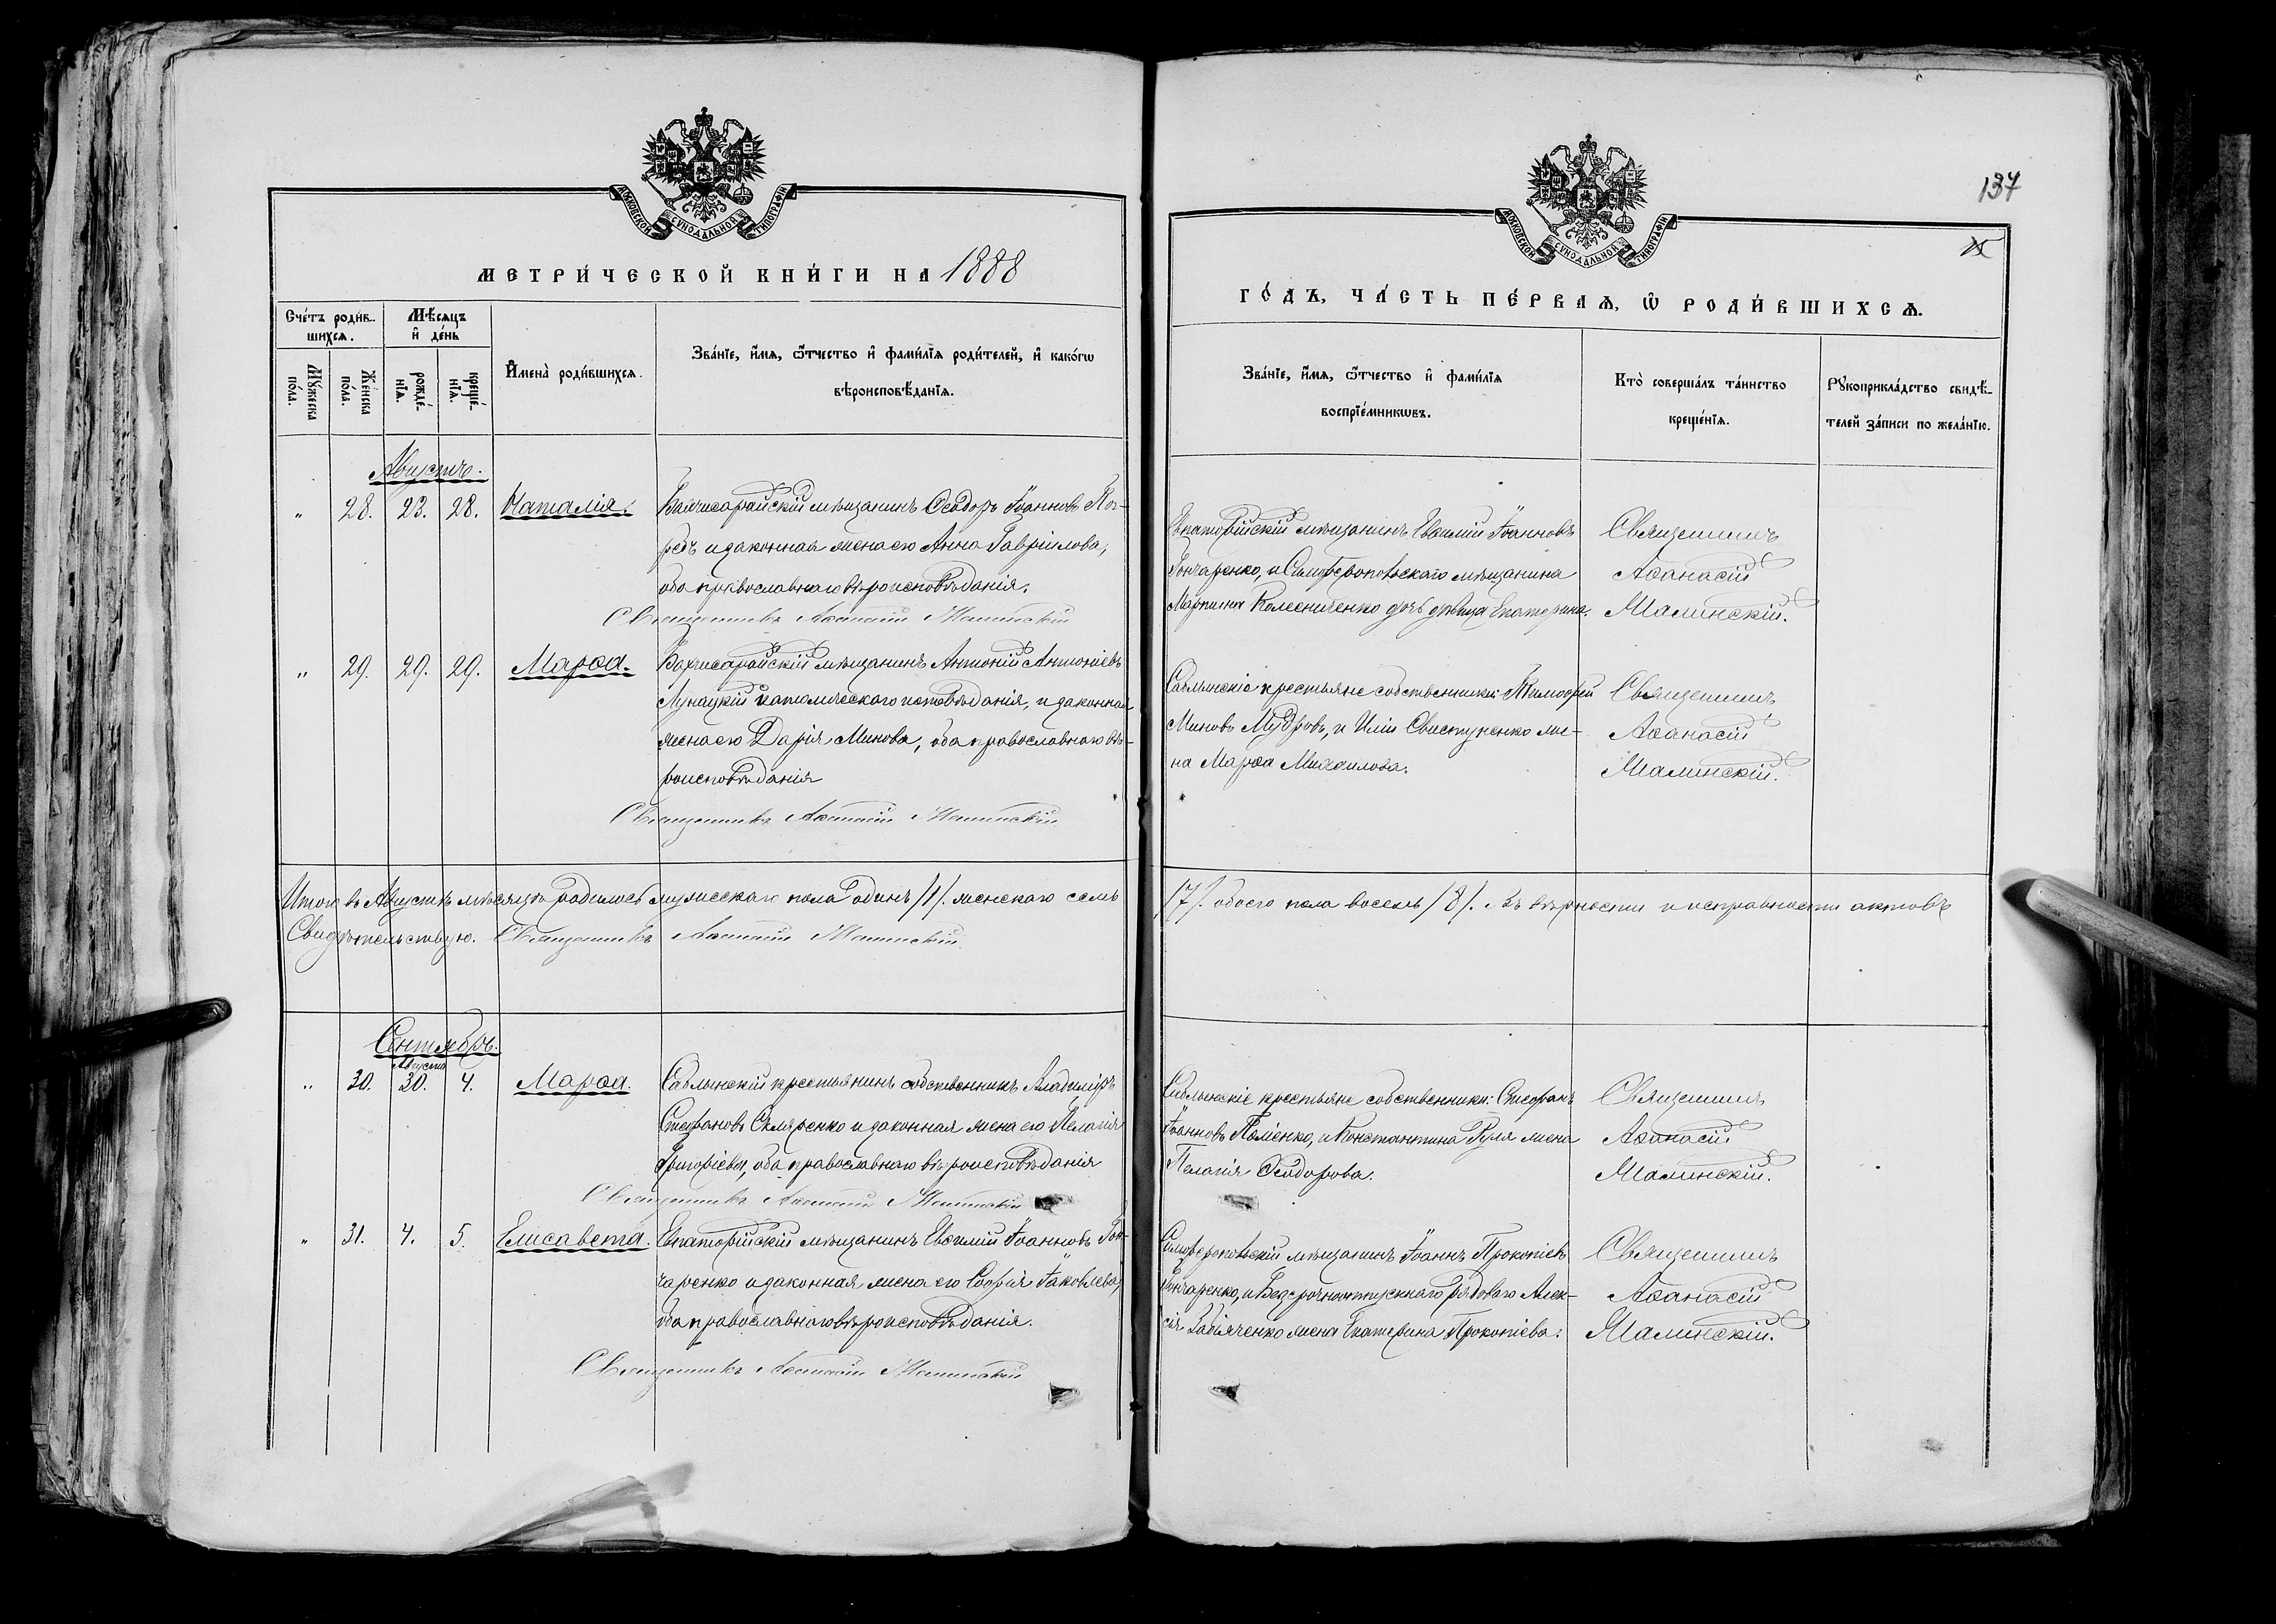 МОСКОВСКОЙ СѴНОДАЛЬНОЙ ТИПОГРАФІИ
МЕТРИ́ЧЕСКОЙ КНИ́ГИ НА 1888
Сче́тъ роди́в-
шихсѧ.
Мѣ́сѧцъ
и҆ де́нь
Мꙋ́жеска
по́ла.
Же́нска
по́ла.
рожде́-
нїѧ.
креще́-
нїѧ.
И҆мена̀ роди́вшихсѧ.
Зва́нїе, и҆́мѧ, ѻ҆́тчество и҆ фами́лїѧ роди́телей, и҆ како́гѡ
вѣроисповѣ́данїѧ.
Августъ.
" 28. 23. 28. Наталія. Бахчисарайскій мѣщанинъ Ѳеодоръ Іоанновъ
и законная жена его Анна Гавріилова,
оба православнаго вѣроисповѣданія.
Священникъ Аѳанасій Малинскій
" 29. 29. 29. Марѳа. Бахчисарайскій мѣщанинъ Антоній Антоніевъ
Лунацкій католическаго исповѣданія, и законная
жена его Дарія Минова, оба православнаго вѣ-
роисповѣданія
Священникъ Аѳанасій Малинскій
Итого въ Августѣ мѣсяцѣ родилось мужескаго пола одинъ /1/. женскаго семь
Свидѣтельствую. Священникъ Аѳанасій Малинскій
Сентябрь.
Августа
" 30. 30. 4. Марѳа. Саблынскій крестьянинъ собственникъ Владиміръ
Стефановъ Скляренко и законная жена его Пелагія
Григоріева, оба православнаго вѣроисповѣданія
Священникъ Аѳанасій Малинскій
" 31. 4. 5. Елисавета. Евпаторійскій мѣщанинъ Евѳимій Іоанновъ Гон-
чаренко и законная жена его Софія Іаковлева,
оба православнаго вѣроисповѣданія.
Священникъ Аѳанасій Малинскій
137
МОСКОВСКОЙ СѴНОДАЛЬНОЙ ТИПОГРАФІИ
ГО́ДЪ, ЧА́СТЬ ПЕ́РВАѦ, Ѡ҆ РОДИ́ВШИХСѦ.
Зва́нїе, и҆́мѧ, ѻ҆́тчество и҆ фами́лїѧ
воспрїе́мникѡвъ.
Кто̀ соверша́лъ та́инство
креще́нїѧ.
Рꙋкоприкла́дство свидѣ́-
телей за́писи по жела́нїю.
Евпаторійскій мѣщанинъ Евѳимій Іоанновъ Священникъ
Гончаренко, и Симферопольскаго мѣщанина Аѳанасій
Мартина Колесниченко дочь дѣвица Екатерина. Малинскій.
Саблынскіе крестьяне собственники: Тимофей Священникъ
Миновъ Мудровъ, и Иліи Свистуненко же- Аѳанасій
на Марѳа Михаилова. Малинскій.
/7/. обоего пола восемь /8/. Въ вѣрности и исправности актовъ
Саблынскіе крестьяне собственники: Стефанъ Священникъ
Іоанновъ и Константина жена Аѳанасій
Пелагія Ѳеодорова. Малинскій.
Симферопольскій мѣщанинъ Іоаннъ Прокопіевъ Священникъ
Гончаренко, и Безсрочноотпускнаго рядоваго Алек- Аѳанасій
сія жена Екатерина Прокопіева. Малинскій.